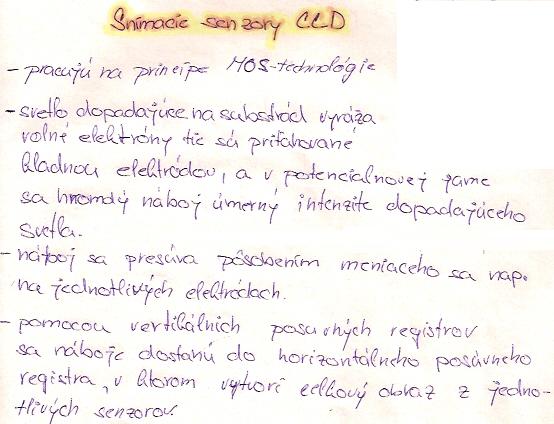 Snímacie senzory CCD
- pracujú na princípe MOS-technológie
- svetlo dopadajúce na substrád vyráža
voľné elektróny tie sú priťahované
kladnou elektródou, a v potencialnovej jame
sa hromdý náboj úmerný intenzite dopadajúceho
svetla.
- náboj sa presúva pôsobením meniaceho sa nap.
na jednotlivých elektródach.
- pomocou vertikálnich posuvných registrov
sa náboje dostanú do horizontálneho posúvneho
registra, v ktorom vytvorí celkový obraz z jedno-
tlivých senzorov.